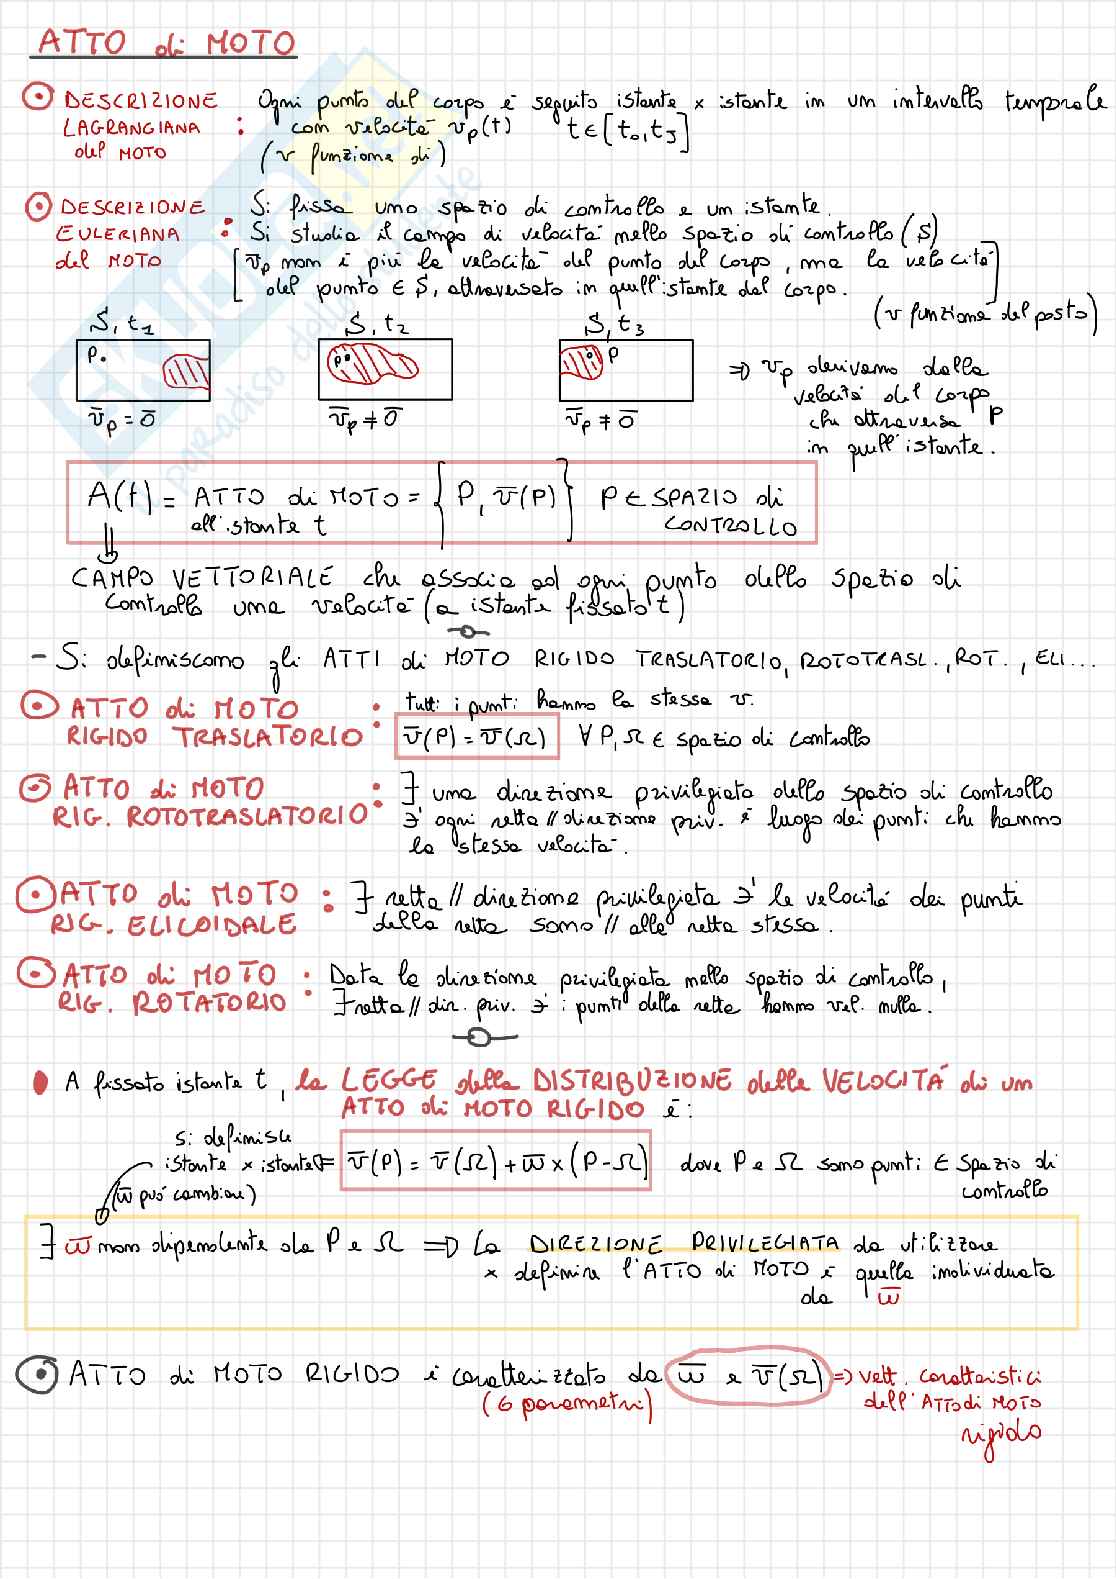 ATTO di MOTO
DESCRIZIONE LAGRANGIANA del MOTO : Ogni punto del corpo è seguito istante x istante in un intervallo temporale
con velocità v_P(t) t∈[t₀,t₁]
(v funzione di )
DESCRIZIONE EULERIANA del MOTO : Si fissa uno spazio di controllo e un istante.
Si studia il campo di velocità nello spazio di controllo (S)
[v̅_P non è più la velocità del punto del corpo, ma la velocità
del punto ∈ S, attraversato in quell'istante dal corpo.]
(v funzione del posto)
S, t₁ S, t₂ S, t₃
P P P
v̅_P = 0̅ v̅_P ≠ 0̅ v̅_P ≠ 0̅
⇒ v_P derivano dalla
velocità del corpo
che attraversa P
in quell'istante.
A(t) = ATTO di MOTO = {P, v̅(P)} P ∈ SPAZIO di
all'istante t CONTROLLO
CAMPO VETTORIALE che associa ad ogni punto dello spazio di
controllo una velocità (a istante fissato t)
- Si definiscono gli ATTI di MOTO RIGIDO TRASLATORIO, ROTOTRASL., ROT., ELI...
ATTO di MOTO RIGIDO TRASLATORIO : tutti i punti hanno la stessa v.
v̅(P) = v̅(Ω) ∀ P, Ω ∈ spazio di controllo
ATTO di MOTO RIG. ROTOTRASLATORIO : ∃ una direzione privilegiata dello spazio di controllo
∋' ogni retta // direzione priv. è luogo dei punti che hanno
la stessa velocità.
ATTO di MOTO RIG. ELICOIDALE : ∃ retta // direzione privilegiata ∋' le velocità dei punti
della retta sono // alla retta stessa.
ATTO di MOTO RIG. ROTATORIO : Data la direzione privilegiata nello spazio di controllo,
∃ retta // dir. priv. ∋' i punti della retta hanno vel. nulla.
A fissato istante t, la LEGGE della DISTRIBUZIONE delle VELOCITÁ di un
ATTO di MOTO RIGIDO è:
si definisce
istante x istante ⇐ v̅(P) = v̅(Ω) + w̅ x (P-Ω) dove P e Ω sono punti ∈ Spazio di
(w̅ può cambiare) controllo
∃ w̅ non dipendente da P e Ω ⇒ La DIREZIONE PRIVILEGIATA da utilizzare
x definire l'ATTO di MOTO è quella individuata
da w̅
ATTO di MOTO RIGIDO è caratterizzato da w̅ e v̅(Ω) ⇒ vett. caratteristici
(6 parametri) dell'ATTO di MOTO
rigido